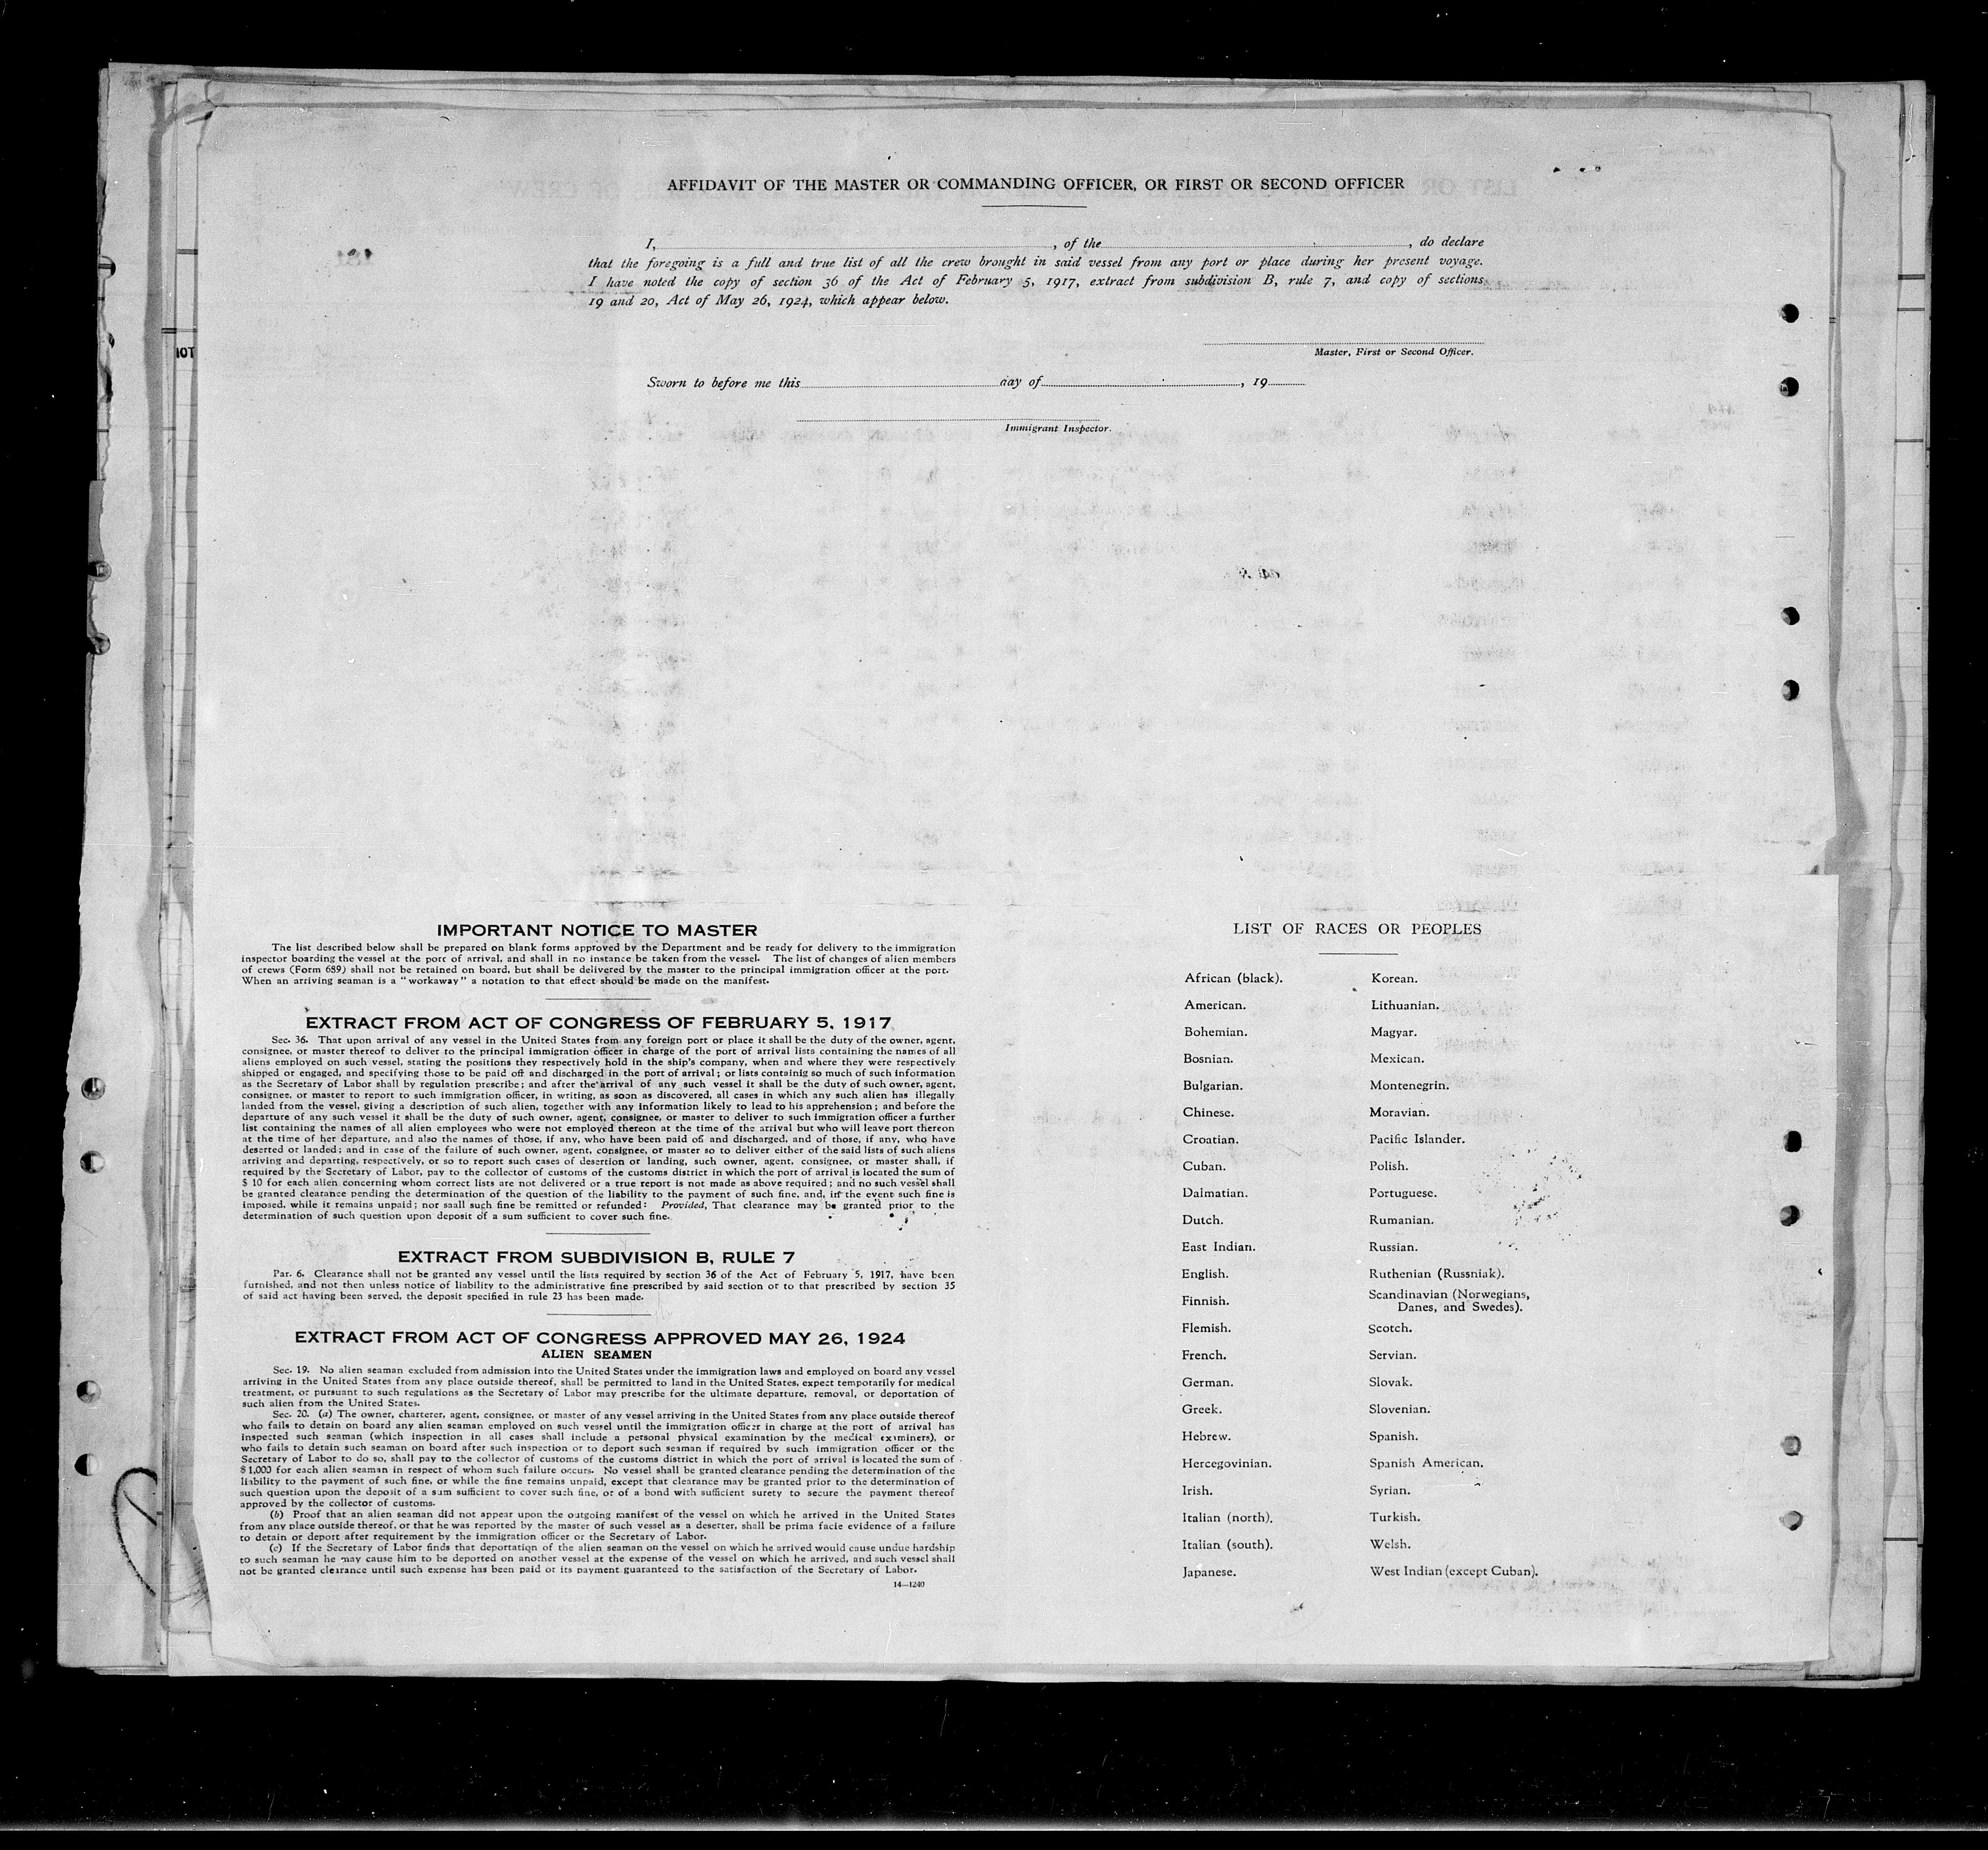 AFFIDAVIT OF THE MASTER OR COMMANDING OFFICER, OR FIRST OR SECOND OFFICER
I, , of the , do declare
that the foregoing is a full and true list of all the crew brought in said vessel from any port or place during her present voyage.
I have noted the copy of section 36 of the Act of February 5, 1917, extract from subdivision B, rule 7, and copy of sections
19 and 20, Act of May 26, 1924, which appear below.
Master, First or Second Officer.
Sworn to before me this day of , 19
Immigrant Inspector.
IMPORTANT NOTICE TO MASTER
The list described below shall be prepared on blank forms approved by the Department and be ready for delivery to the immigration
inspector boarding the vessel at the port of arrival, and shall in no instance be taken from the vessel. The list of changes of alien members
of crews (Form 689) shall not be retained on board, but shall be delivered by the master to the principal immigration officer at the port.
When an arriving seaman is a "workaway" a notation to that effect should be made on the manifest.
EXTRACT FROM ACT OF CONGRESS OF FEBRUARY 5, 1917
Sec. 36. That upon arrival of any vessel in the United States from any foreign port or place it shall be the duty of the owner, agent,
consignee, or master thereof to deliver to the principal immigration officer in charge of the port of arrival lists containing the names of all
aliens employed on such vessel, stating the positions they respectively hold in the ship's company, when and where they were respectively
shipped or engaged, and specifying those to be paid off and discharged in the port of arrival; or lists containig so much of such information
as the Secretary of Labor shall by regulation prescribe; and after the arrival of any such vessel it shall be the duty of such owner, agent,
consignee, or master to report to such immigration officer, in writing, as soon as discovered, all cases in which any such alien has illegally
landed from the vessel, giving a description of such alien, together with any information likely to lead to his apprehension; and before the
departure of any such vessel it shall be the duty of such owner, agent, consignee, or master to deliver to such immigration officer a further
list containing the names of all alien employees who were not employed thereon at the time of the arrival but who will leave port thereon
at the time of her departure, and also the names of those, if any, who have been paid off and discharged, and of those, if any, who have
deserted or landed; and in case of the failure of such owner, agent, consignee, or master so to deliver either of the said lists of such aliens
arriving and departing, respectively, or so to report such cases of desertion or landing, such owner, agent, consignee, or master shall, if
required by the Secretary of Labor, pay to the collector of customs of the customs district in which the port of arrival is located the sum of
$ 10 for each alien concerning whom correct lists are not delivered or a true report is not made as above required; and no such vessel shall
be granted clearance pending the determination of the question of the liability to the payment of such fine, and, in the event such fine is
imposed, while it remains unpaid; nor saall such fine be remitted or refunded: Provided, That clearance may be granted prior to the
determination of such question upon deposit of a sum sufficient to cover such fine.
EXTRACT FROM SUBDIVISION B, RULE 7
Par. 6. Clearance shall not be granted any vessel until the lists required by section 36 of the Act of February 5, 1917, have been
furnished, and not then unless notice of liability to the administrative fine prescribed by said section or to that prescribed by section 35
of said act having been served, the deposit specified in rule 23 has been made.
EXTRACT FROM ACT OF CONGRESS APPROVED MAY 26, 1924
ALIEN SEAMEN
Sec. 19. No alien seaman excluded from admission into the United States under the immigration laws and employed on board any vessel
arriving in the United States from any place outside thereof, shall be permitted to land in the United States, expect temporarily for medical
treatment, or pursuant to such regulations as the Secretary of Labor may prescribe for the ultimate departure, removal, or deportation of
such alien from the United States.
Sec. 20. (a) The owner, charterer, agent, consignee, or master of any vessel arriving in the United States from any place outside thereof
who fails to detain on board any alien seaman employed on such vessel until the immigration officer in charge at the port of arrival has
inspected such seaman (which inspection in all cases shall include a personal physical examination by the medical examiners), or
who fails to detain such seaman on board after such inspection or to deport such seaman if required by such immigration officer or the
Secretary of Labor to do so, shall pay to the collector of customs of the customs district in which the port of arrival is located the sum of
$1,000 for each alien seaman in respect of whom such failure occurs. No vessel shall be granted clearance pending the determination of the
liability to the payment of such fine, or while the fine remains unpaid, except that clearance may be granted prior to the determination of
such question upon the deposit of a sum sufficient to cover such fine, or of a bond with sufficient surety to secure the payment thereof
approved by the collector of customs.
(b) Proof that an alien seaman did not appear upon the outgoing manifest of the vessel on which he arrived in the United States
from any place outside thereof, or that he was reported by the master of such vessel as a deserter, shall be prima facie evidence of a failure
to detain or deport after requirement by the immigration officer or the Secretary of Labor.
(c) If the Secretary of Labor finds that deportation of the alien seaman on the vessel on which he arrived would cause undue hardship
to such seaman he may cause him to be deported on another vessel at the expense of the vessel on which he arrived, and such vessel shall
not be granted clearance until such expense has been paid or its payment guaranteed to the satisfaction of the Secretary of Labor.
14—1240
LIST OF RACES OR PEOPLES
African (black).
American.
Bohemian.
Bosnian.
Bulgarian.
Chinese.
Croatian.
Cuban.
Dalmatian.
Dutch.
East Indian.
English.
Finnish.
Flemish.
French.
German.
Greek.
Hebrew.
Hercegovinian.
Irish.
Italian (north).
Italian (south).
Japanese.
Korean.
Lithuanian.
Magyar.
Mexican.
Montenegrin.
Moravian.
Pacific Islander.
Polish.
Portuguese.
Rumanian.
Russian.
Ruthenian (Russniak).
Scandinavian (Norwegians,
Danes, and Swedes).
Scotch.
Servian.
Slovak.
Slovenian.
Spanish.
Spanish American.
Syrian.
Turkish.
Welsh.
West Indian (except Cuban).